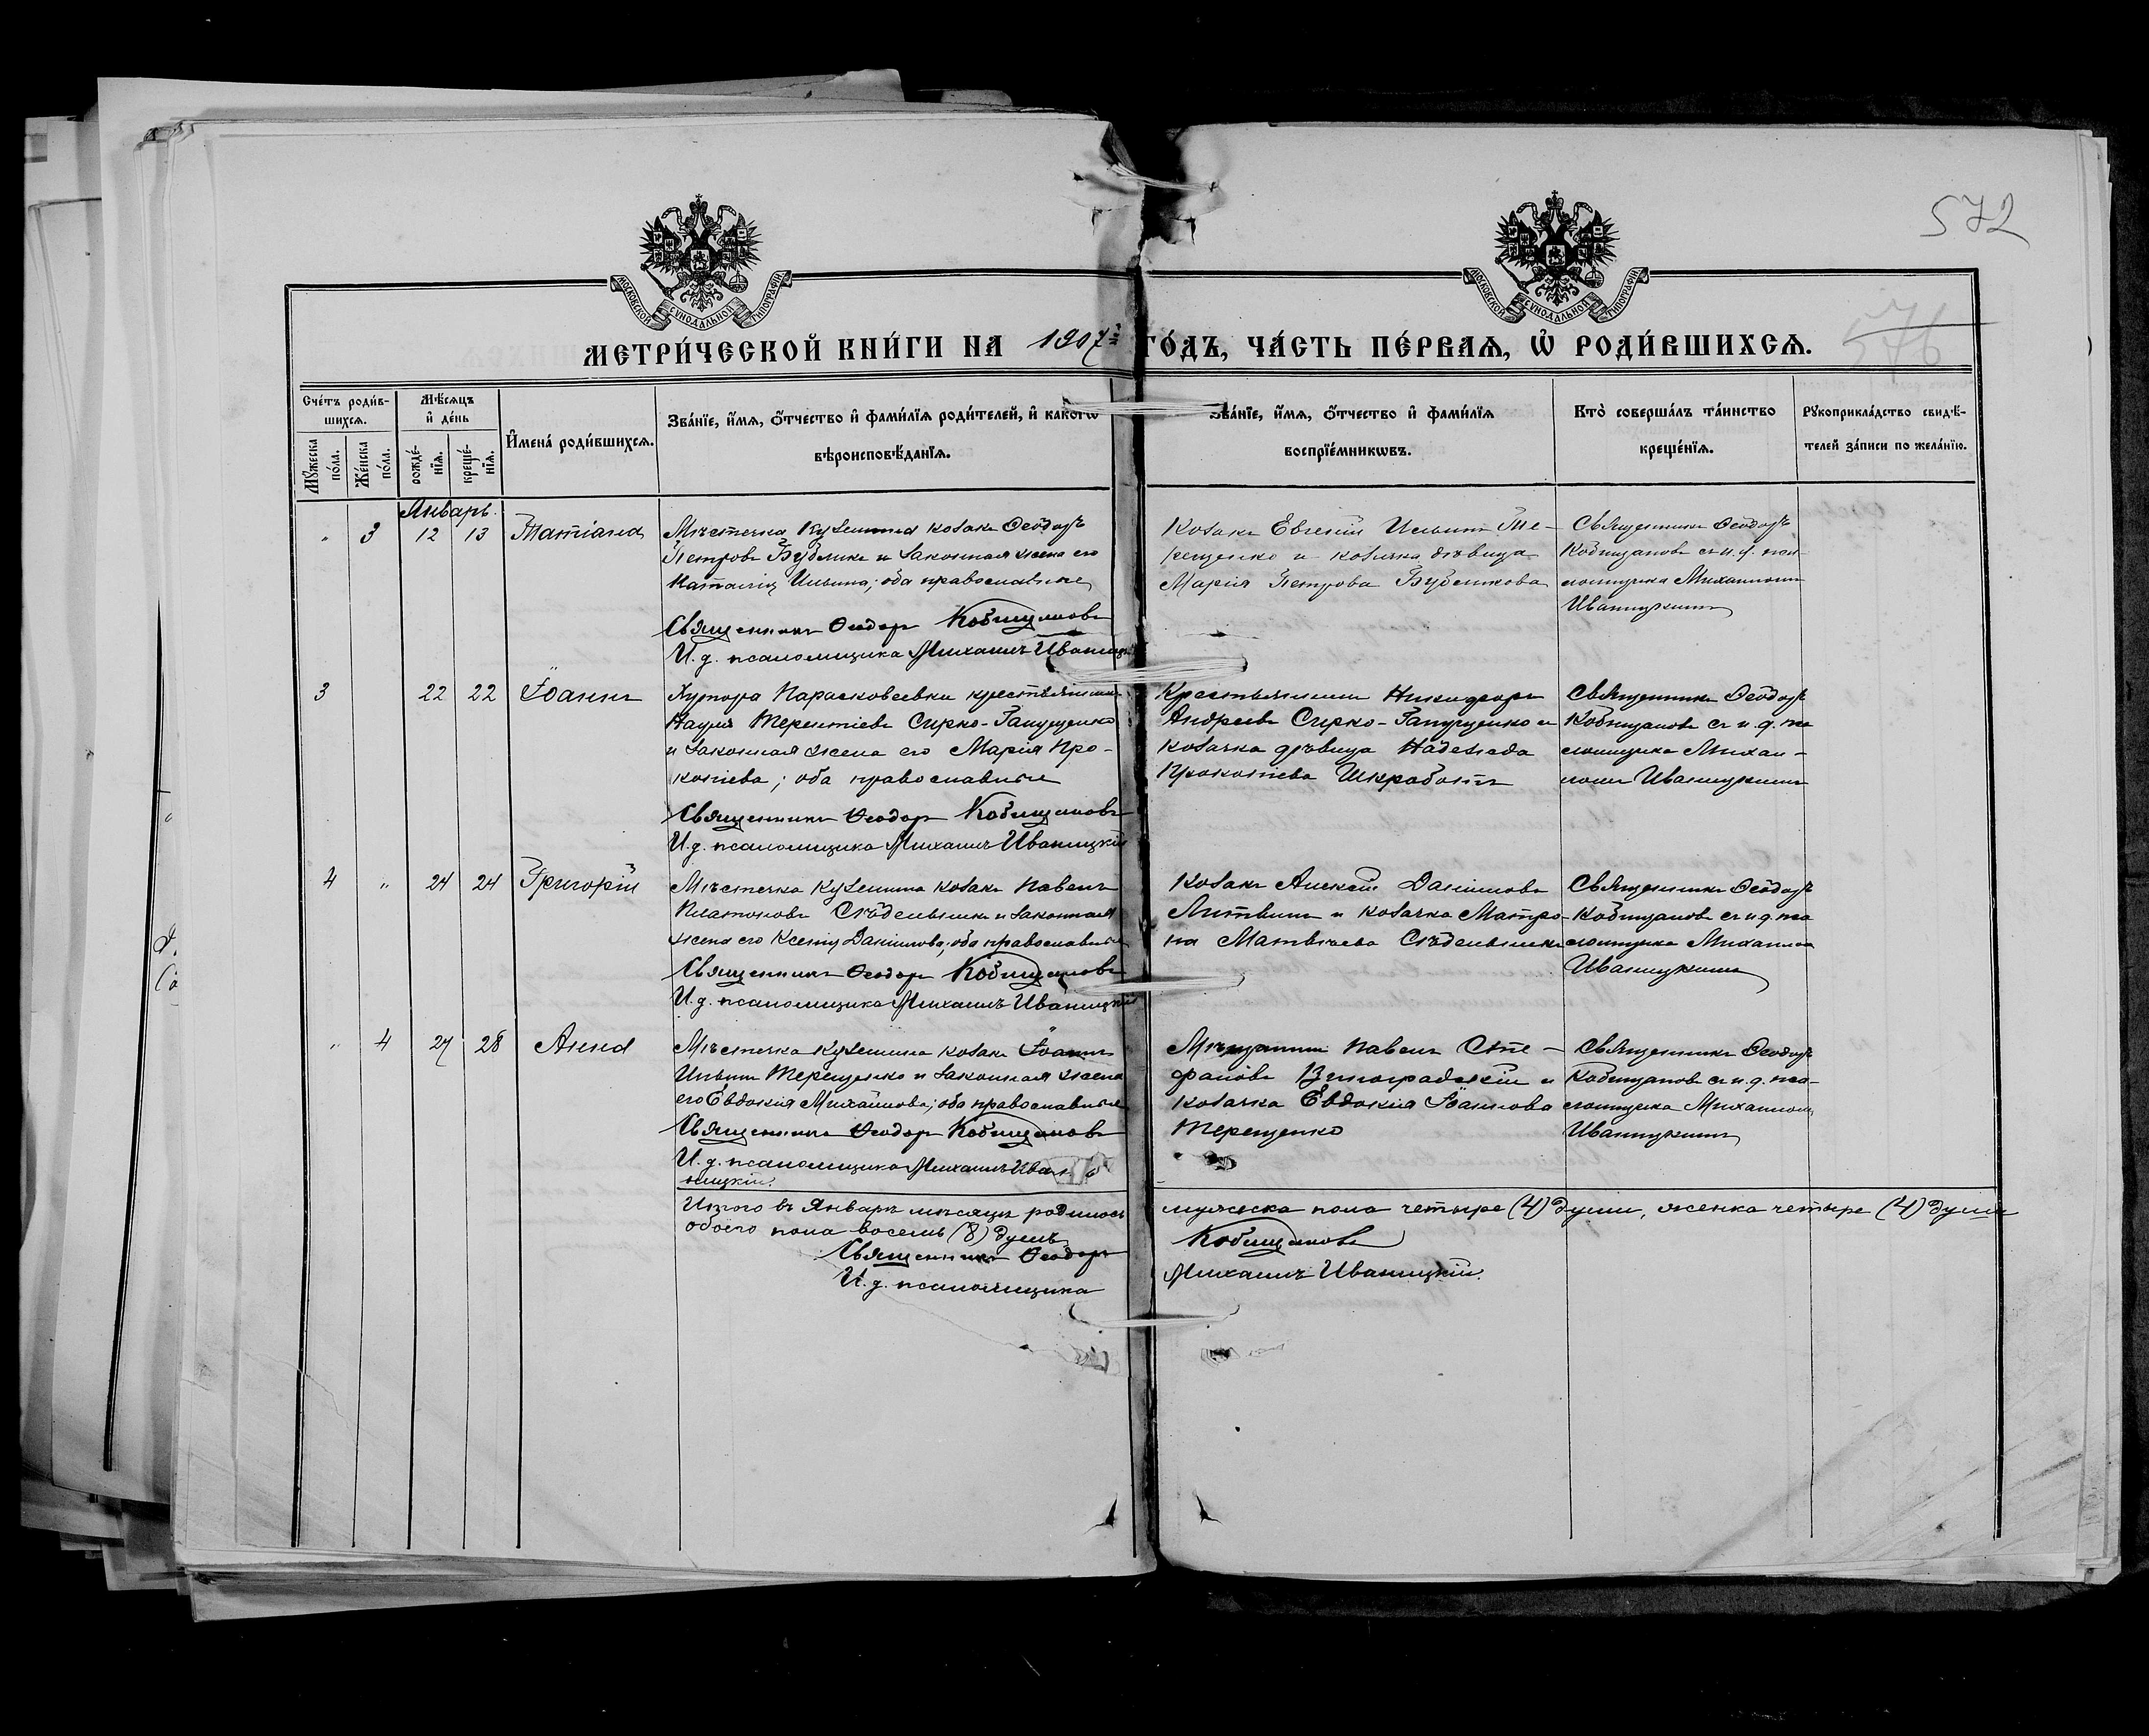 572
576
МОСКОВСКОЙ СѴНОДАЛЬНОЙ ТИПОГРАФІИ
МОСКОВСКОЙ СѴНОДАЛЬНОЙ ТИПОГРАФІИ
МЕТРИ́ЧЕСКОЙ КНИ́ГИ НА 1907й ГО́ДЪ, ЧА́СТЬ ПЕ́РВАѦ, Ѡ҆ РОДИ́ВШИХСѦ.
Сче́тъ роди́в-
шихсѧ.
Мꙋ́жеска по́ла.
Же́нска по́ла.
Мѣ́сѧцъ
и҆ де́нь
рожде́-
нїѧ.
креще́-
нїѧ.
И҆мена̀ роди́вшихсѧ.
Зва́нїе, и҆́мѧ, ѻ҆́тчество и҆ фами́лїѧ роди́телей, и҆ како́гѡ
вѣроисповѣ́данїѧ.
Зва́нїе, и҆́мѧ, ѻ҆́тчество и҆ фами́лїѧ
воспрїе́мникѡвъ.
Кто̀ соверша́лъ та́инство
креще́нїѧ.
Рꙋкоприкла́дство свидѣ́-
телей за́писи по жела́нїю.
Январь.
" 3 12 13 Татіана
Мѣстечка Куземина козакъ Ѳеодоръ
Петровъ Бубликъ и законная жена его
Наталія Ильина; оба православные
Священникъ Ѳеодоръ Кобищановъ
И. д. псаломщика Михаилъ Иваницкій
Козакъ Евгеній Ильинъ Те-
рещенко и козачка дѣвица
Марія Петрова Бубликова
Священникъ Ѳеодоръ
Кобищановъ съ и. д. пса-
ломщика Михаиломъ
Иваницкимъ
3 22 22 Іоаннъ
Хутора Парасковеевки крестьянинъ
Наумъ Терентіевъ Сирко-Гапущенко
и законная жена его Марія Про-
копіева; оба православные
Священникъ Ѳеодоръ Кобищановъ
И. д. псаломщика Михаилъ Иваницкій
Крестьянинъ Никифоръ
Андреевъ Сирко-Гапущенко и
козачка дѣвица Надежда
Прокопіева Шкработъ
Священникъ Ѳеодоръ
Кобищановъ съ и. д. пса
ломщика Михаи-
ломъ Иваницкимъ
4 " 24 24 Григорій
Мѣстечка Куземина козакъ Павелъ
Платоновъ Сѣдельникъ и законная
жена его Ксенія Даніилова; оба православные
Священникъ Ѳеодоръ Кобищановъ
И. д. псаломщика Михаилъ Иваницкій
Козакъ Алексій Даніиловъ
Литвинъ и козачка Матро-
на Матвѣева Сѣдельникъ
Священникъ Ѳеодоръ
Кобищановъ съ и. д. пса
ломщика Михаиломъ
Иваницкимъ
" 4 27 28 Анна
Мѣстечка Куземина козакъ Іоаннъ
Ильинъ Терещенко и законная жена
его Евдокія Михайлова; оба православные
Священникъ Ѳеодоръ Кобищановъ
И. д. псаломщика Михаилъ Ива
ницкій.
Мѣщанинъ Павелъ Сте-
фановъ Виноградскій и
козачка Евдокія Іоаннова
Терещенко
Священникъ Ѳеодоръ
Кобищановъ съ и. д. пса-
ломщика Михаиломъ
Иваницкимъ
Итого въ Январѣ мѣсяцѣ родилось мужеска пола четыре (4) души, женска четыре (4) души
обоего пола восемь (8) душъ
Священникъ Ѳеодоръ Кобищановъ
И. д. псаломщика Михаилъ Иваницкій.